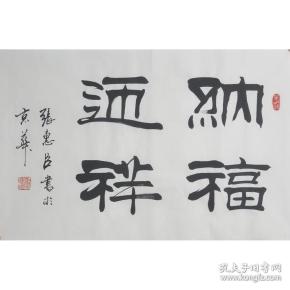 納福
迎祥
張惠臣書於
京華
孔夫子旧书网